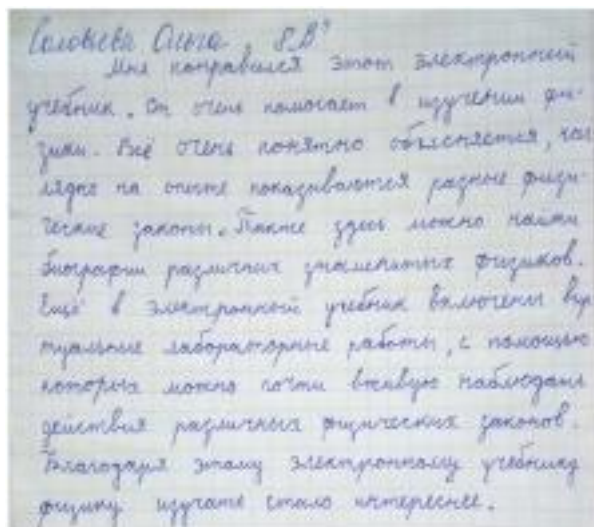 Соловьева Ольга 8„В"
Мне понравился этот электронный
учебник. Он очень помогает в изучении фи-
зики. Всё очень понятно объясняется, наг
лядно на опыте показываются разные физи-
ческие законы. Также здесь можно найти
биографии различных знаменитых физиков.
Ещё в электронный учебник включены вир
туальные лабораторные работы, с помощью
которых можно почти вживую наблюдать
действия различных физических законов.
Благодаря этому электронному учебнику
физику изучать стало интереснее.